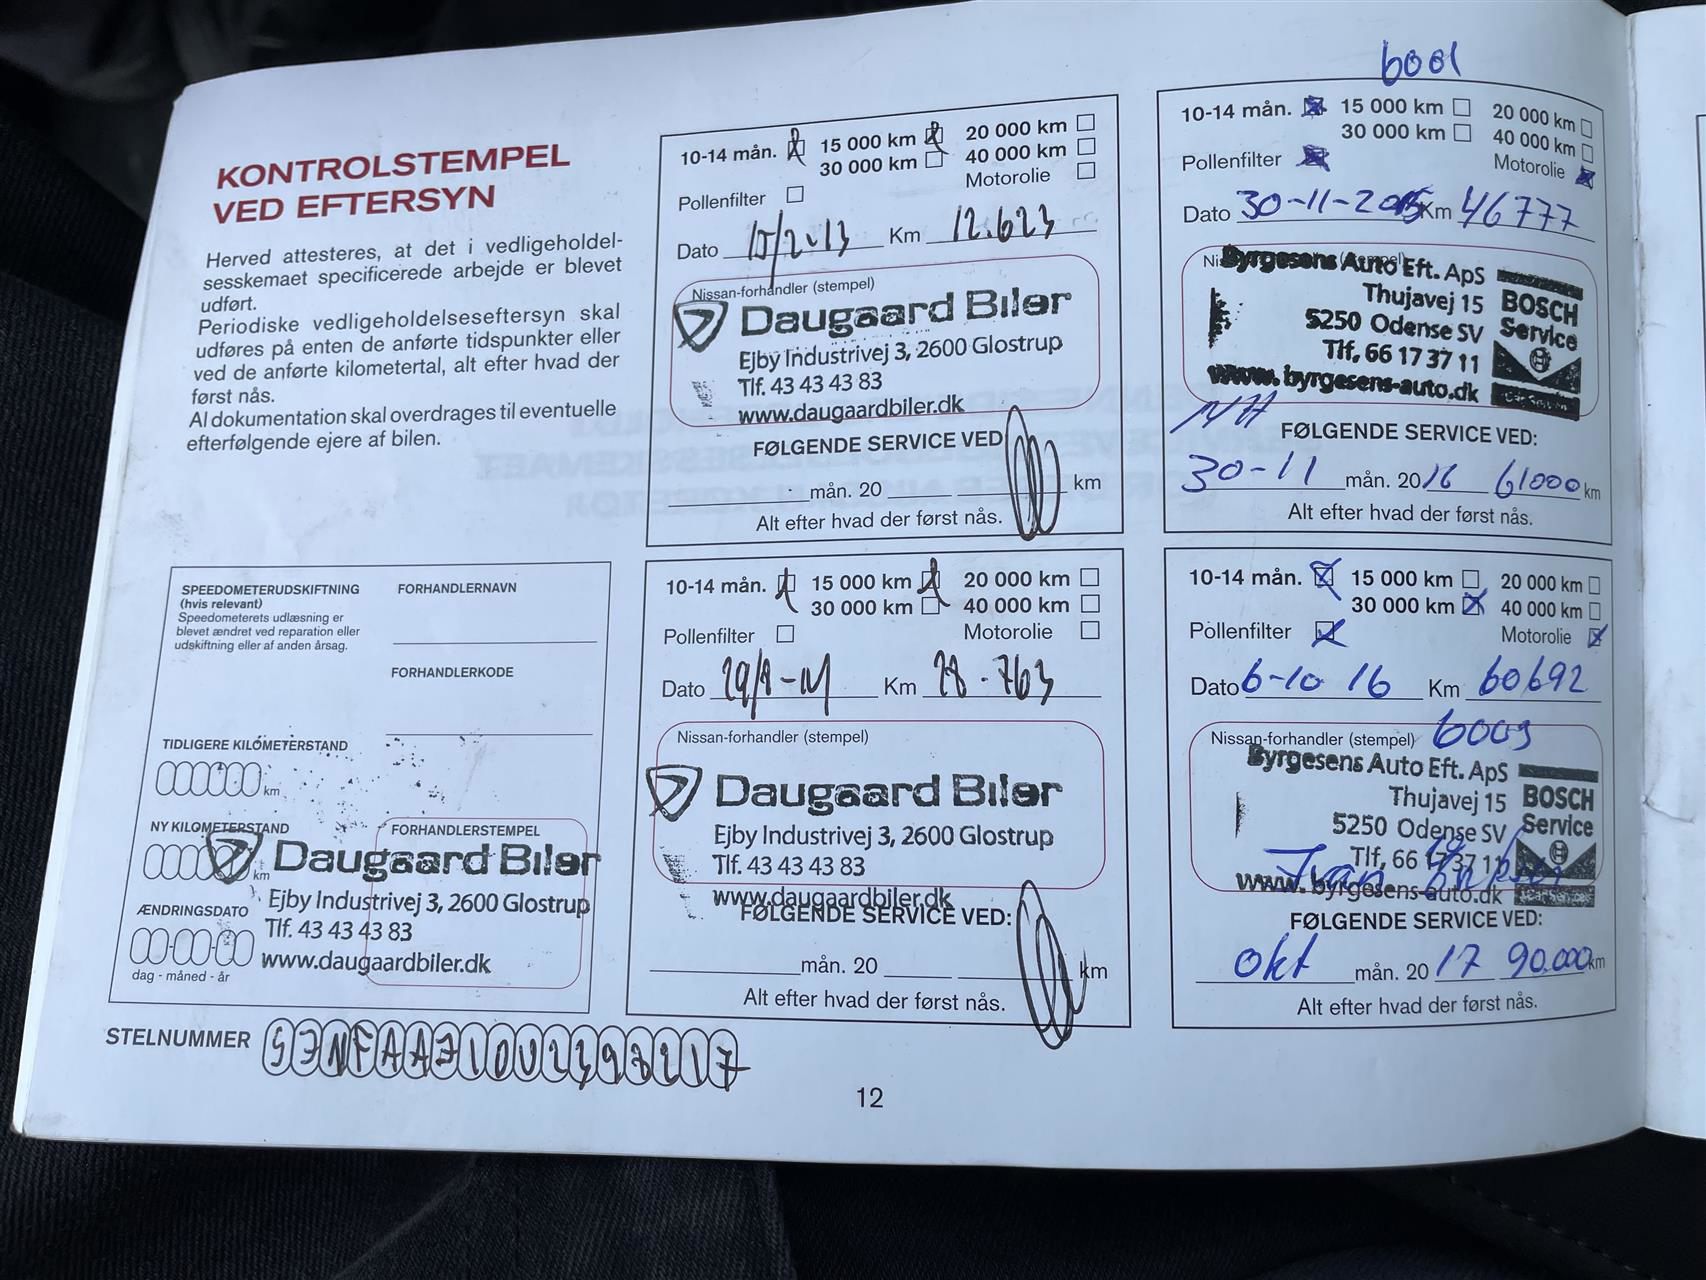 KONTROLSTEMPEL
VED EFTERSYN
Herved attesteres, at det i vedligeholdel-
sesskemaet specificerede arbejde er blevet
udført.
Periodiske vedligeholdelseseftersyn skal
udføres på enten de anførte tidspunkter eller
ved de anførte kilometertal, alt efter hvad der
først nås.
Al dokumentation skal overdrages til eventuelle
efterfølgende ejere af bilen.
SPEEDOMETERUDSKIFTNING
(hvis relevant)
Speedometerets udlæsning er
blevet ændret ved reparation eller
udskiftning eller af anden årsag.
FORHANDLERNAVN
FORHANDLERKODE
TIDLIGERE KILOMETERSTAND
km
NY KILOMETERSTAND
km
FORHANDLERSTEMPEL
Daugaard Biler
Ejby Industrivej 3, 2600 Glostrup
Tlf. 43 43 43 83
www.daugaardbiler.dk
ÆNDRINGSDATO
dag - måned - år
STELNUMMER
10-14 mån. 15 000 km 20 000 km
30 000 km 40 000 km
Pollenfilter Motorolie
Dato Km 12.623
Nissan-forhandler (stempel)
Daugaard Biler
Ejby Industrivej 3, 2600 Glostrup
Tlf. 43 43 43 83
www.daugaardbiler.dk
FØLGENDE SERVICE VED
mån. 20 km
Alt efter hvad der først nås.
10-14 mån. 15 000 km 20 000 km
30 000 km 40 000 km
Pollenfilter Motorolie
Dato Km 28.763
Nissan-forhandler (stempel)
Daugaard Biler
Ejby Industrivej 3, 2600 Glostrup
Tlf. 43 43 43 83
www.daugaardbiler.dk
FØLGENDE SERVICE VED:
mån. 20 km
Alt efter hvad der først nås.
6001
10-14 mån. 15 000 km 20 000 km
30 000 km 40 000 km
Pollenfilter Motorolie
Dato 30-11-2015 Km 46777
Byrgesens Auto Eft. ApS
Thujavej 15 BOSCH
5250 Odense SV Service
Tlf, 66 17 37 11
www.byrgesens-auto.dk
FØLGENDE SERVICE VED:
30-11 mån. 2016 61000 km
Alt efter hvad der først nås.
10-14 mån. 15 000 km 20 000 km
30 000 km 40 000 km
Pollenfilter Motorolie
Dato 6-10 16 Km 60692
Nissan-forhandler (stempel) 6003
Byrgesens Auto Eft. ApS
Thujavej 15 BOSCH
5250 Odense SV Service
Tlf, 66 17 37 11
www.byrgesens-auto.dk
FØLGENDE SERVICE VED:
okt mån. 2017 90.000 km
Alt efter hvad der først nås.
12